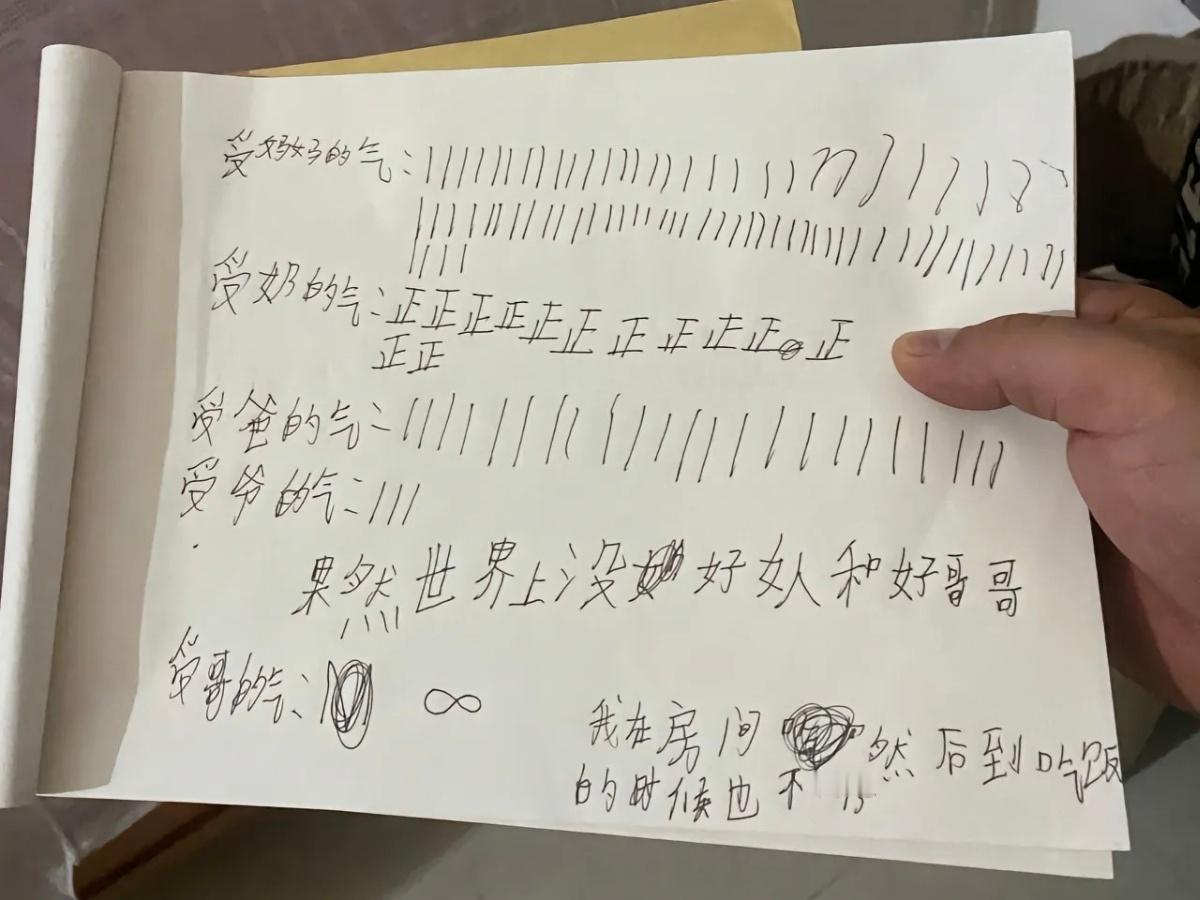 受妈妈的气:
受奶的气:正正正正正正正正正正正
正正
受爸的气:
受爷的气:
果然世界上没好女人和好哥哥
受哥的气: ∞
我在房间 然后到吃饭
的时候也不